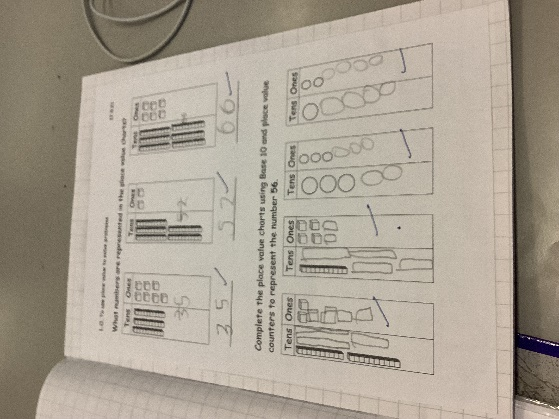 L.O. To use place value to solve problems
What numbers are represented in the place value charts?
Tens Ones
Tens Ones
Tens Ones
35
52
35
52
66
Complete the place value charts using Base 10 and place value
counters to represent the number 56.
Tens Ones
Tens Ones
Tens Ones
Tens Ones